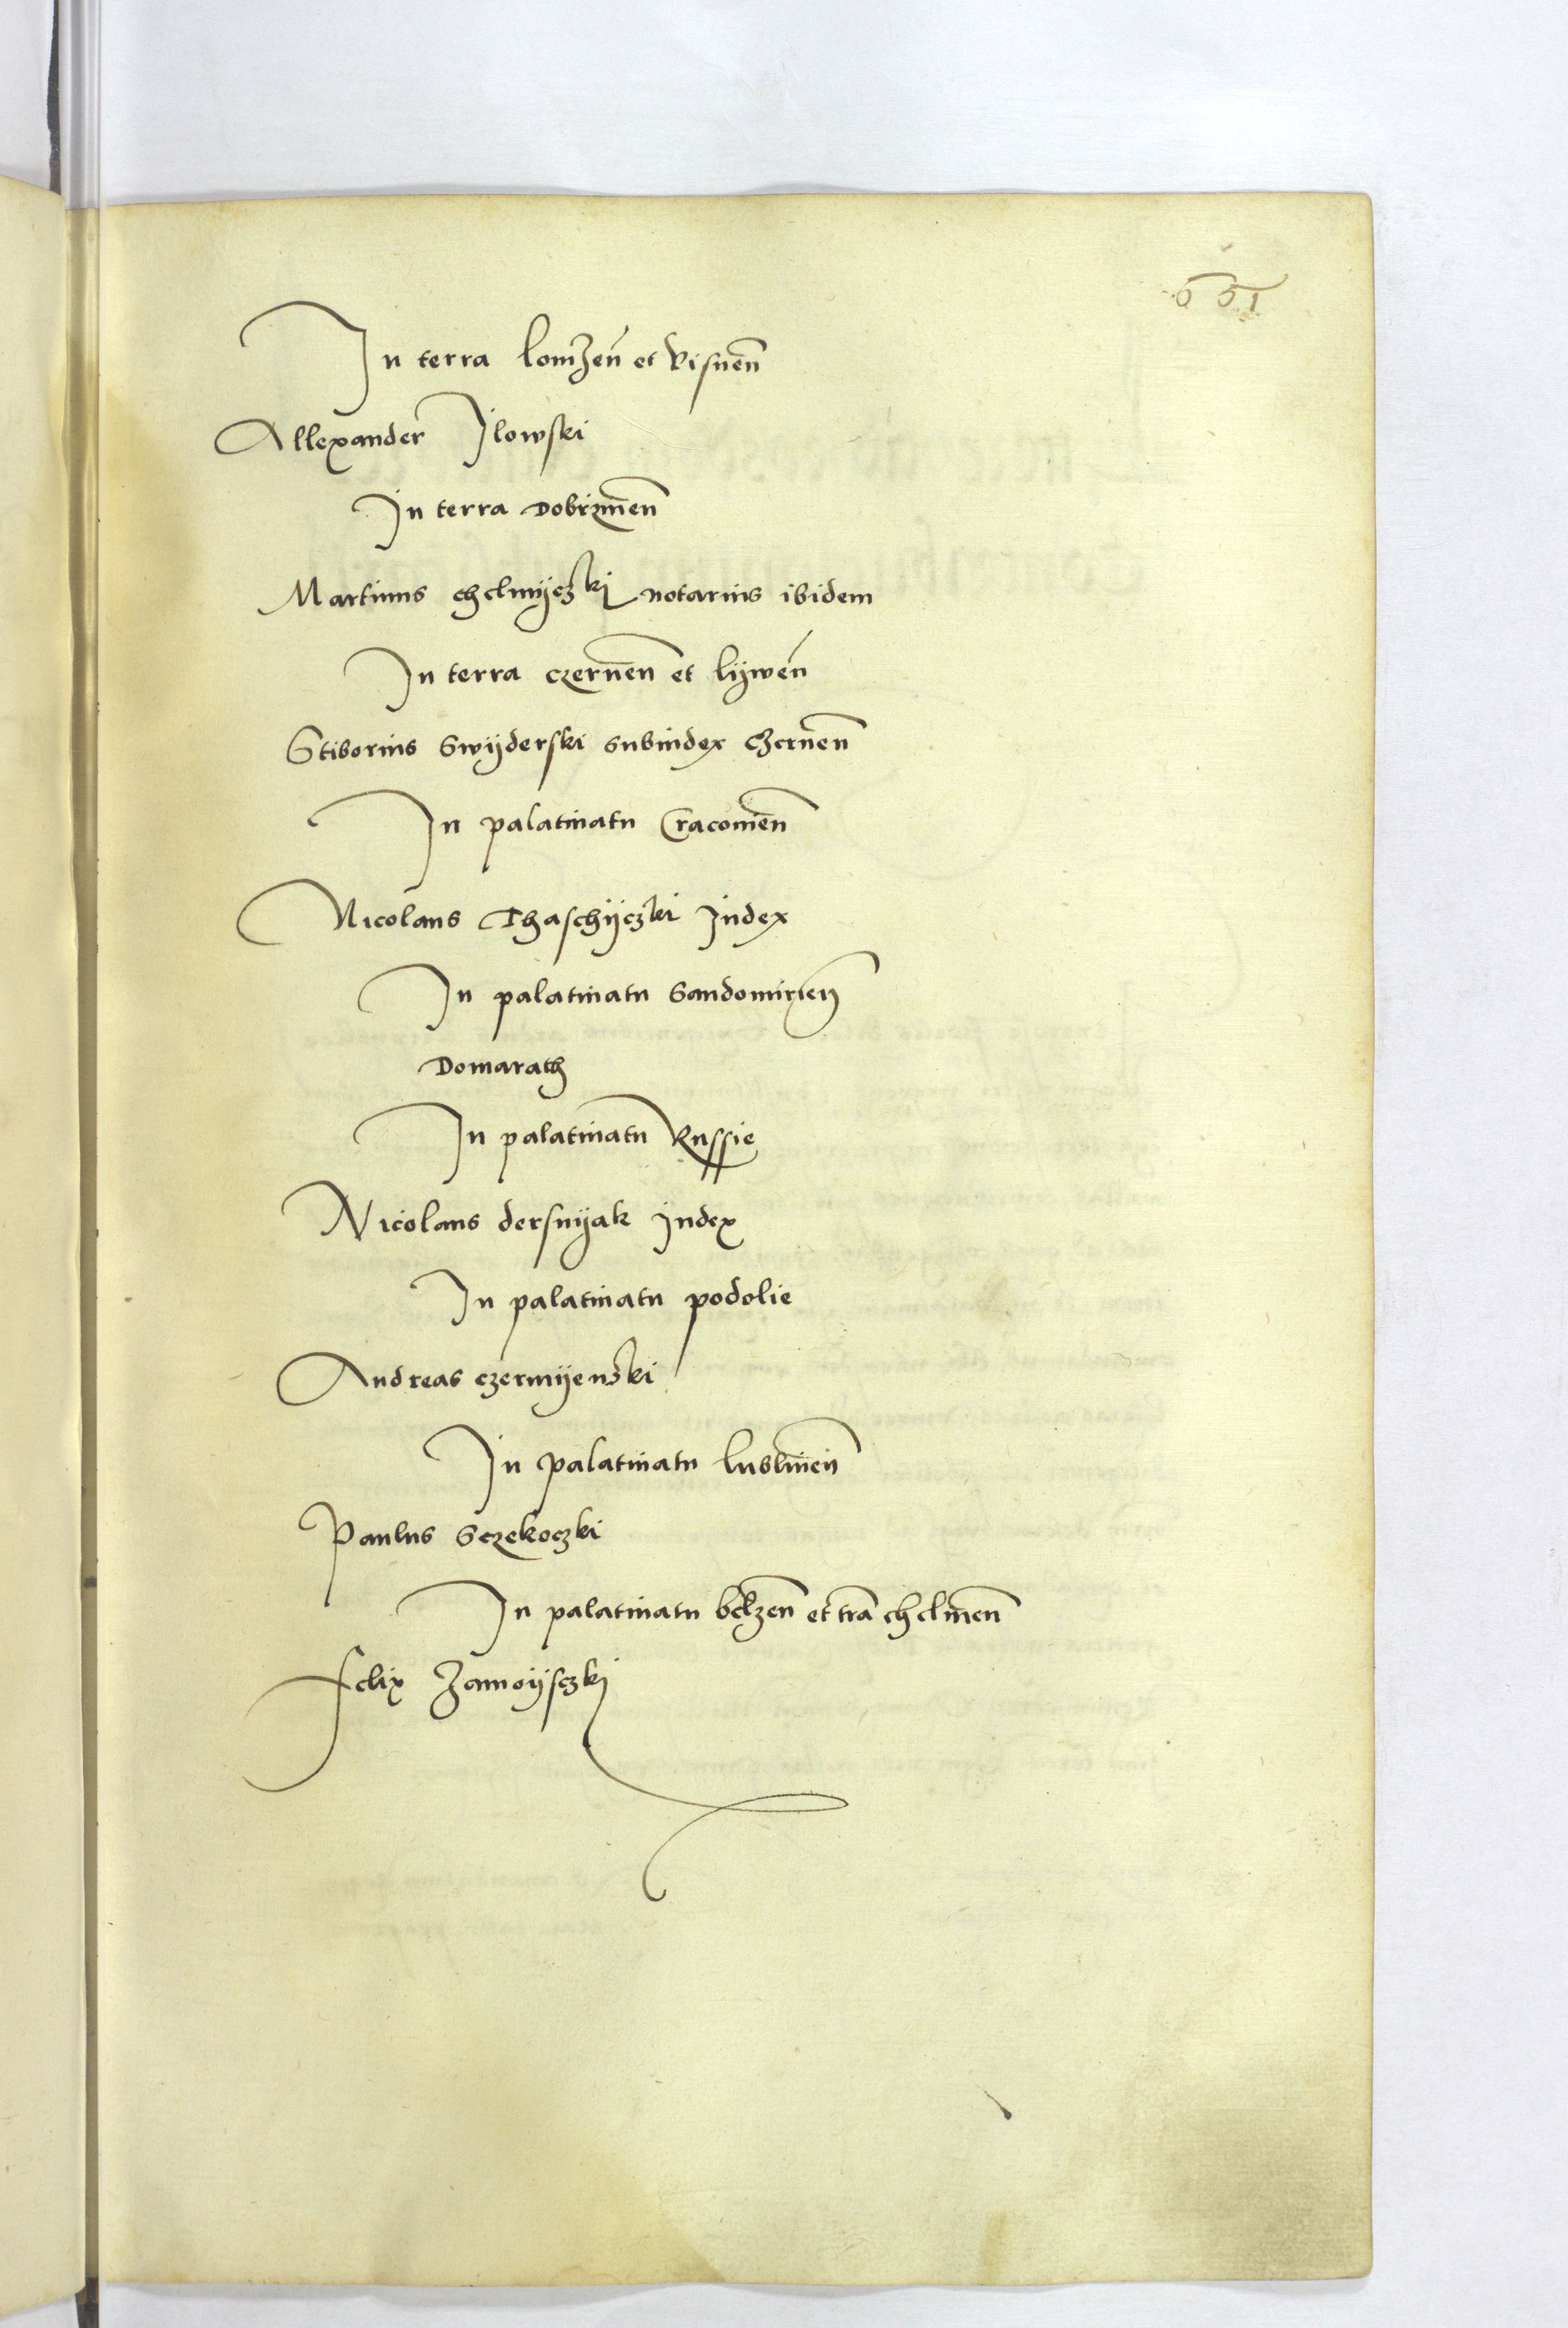 551
In terra lomzen̄ et visnen̄
Allexander Jlowski
In terra Dobrzinen̄
Martinus chelmijczki notarius ibidem
In terra czernen̄ et lijwen̄
Stiborius Swijderski subiudex czernen̄
In palatinatu Cracouien̄
Nicolaus Thaschijczki Judex
In palatinatu Sandomirien̄
Domarath
In palatinatu Russie
Nicolaus dersnijak Judex
In palatinatu podolie
Andreas czermijenski
In palatinatu lublinen̄
Paulus Sczekoczki
In palatinatu belzen̄ et tr̄a chelmen̄
felix Zamoijsczki